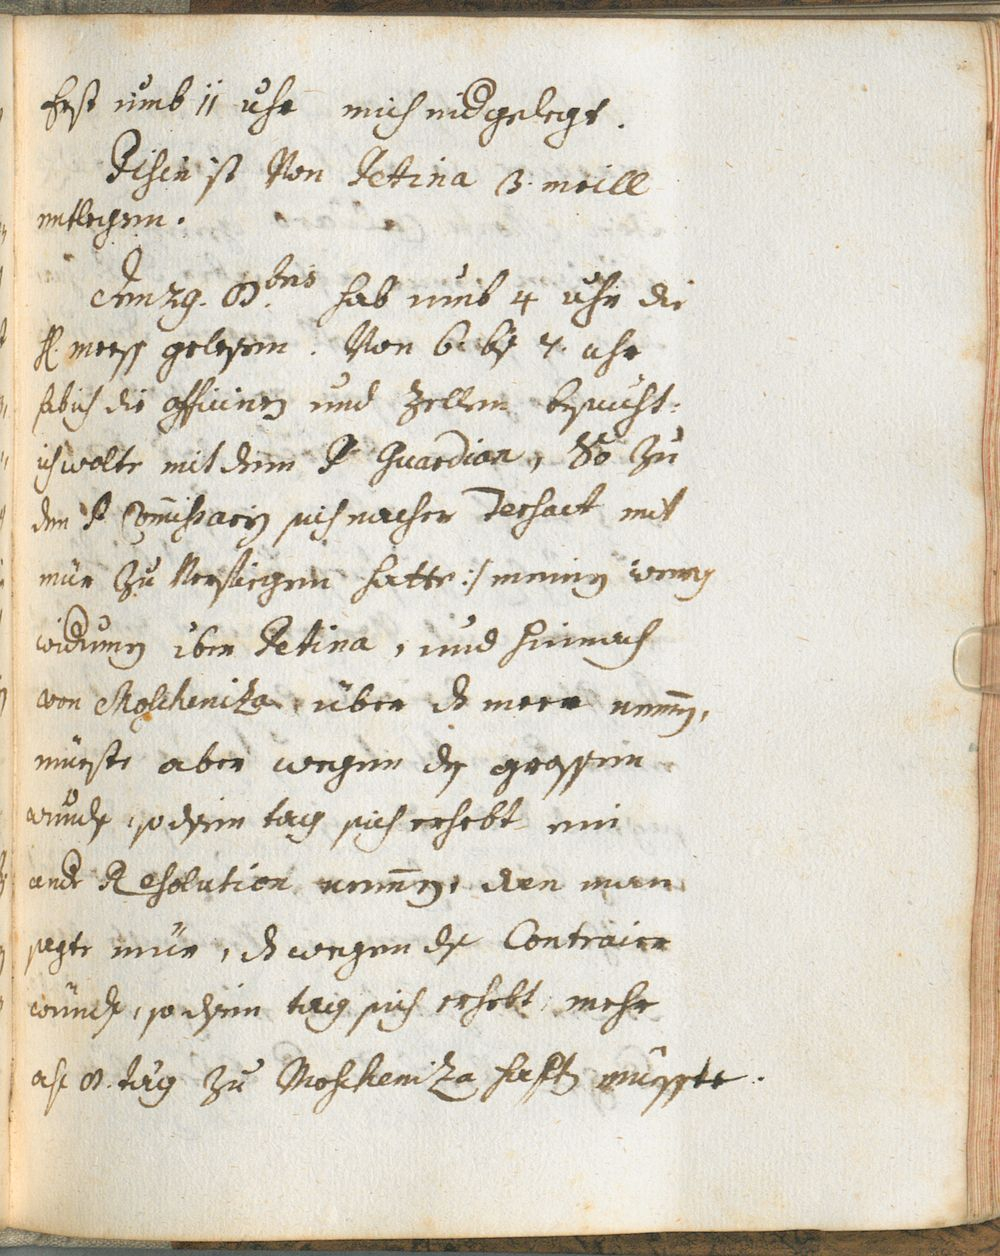 Erst umb 11 uhr mich nidgelegt.
Pisin ist Von Petina 3. meill
entlegen.
Den 29. 8bris hab umb 4 uhr die
H. mess gelesen. Von 6. bis 7. uhr
hab ich die officinen und Zellen besucht:
ich wolte mit dem P Guardian, So zu
den P Comissarij sich nacher Tersact mit
mür zu Verfüegen hatte :/ meinen weeg
widrumb über Petina, und hernach
von Moscheniza über dz meer nemmen,
müeste aber wegen des grossen
winds, so disen tag sich erhebt ein
andr Resolution nemmen, dan man
sagte mür, dz wegen des Contrairn
winds, so disen tag sich erhebt, mehr
als 8. täg zu Moscheniza halten müesste.